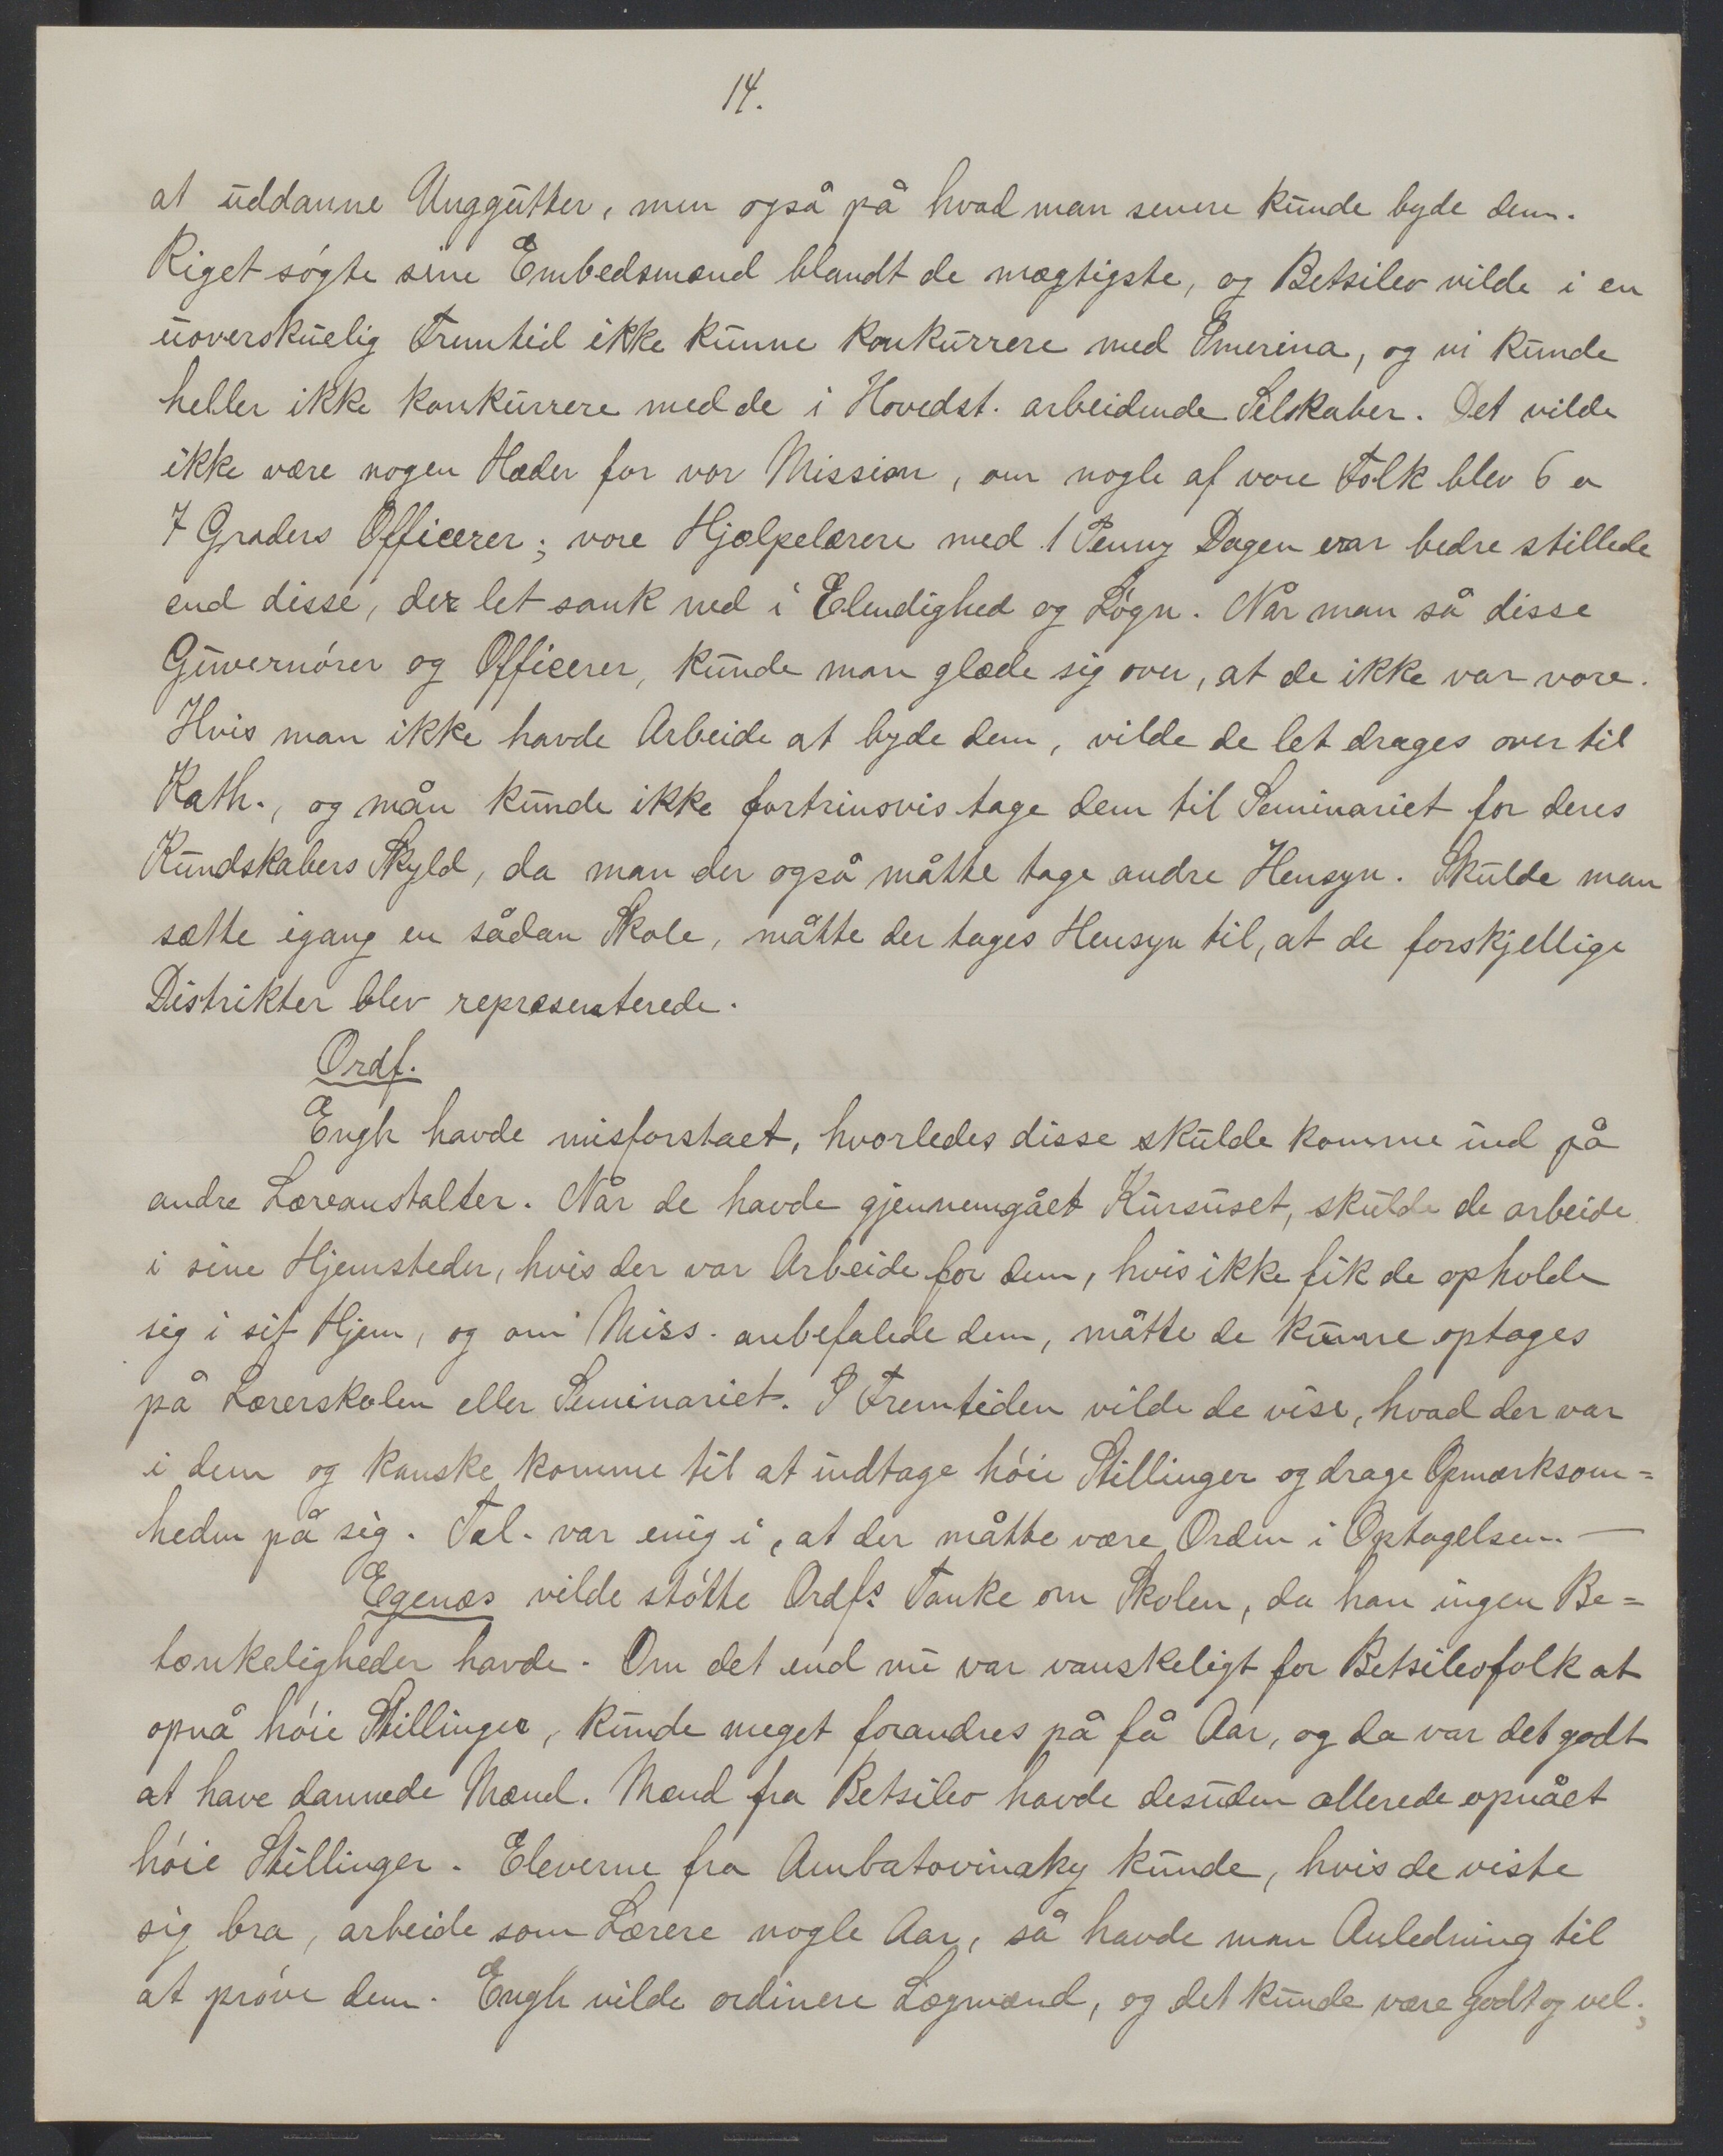 14.
at uddanne Unggutter, men også på hvad man senere kunde byde dem.
Riget søgte sine Embedsmænd blandt de mægtigste, og Betsileo vilde i en
uoverskuelig Fremtid ikke kunne konkurrere med Imerina, og vi kunde
heller ikke konkurrere med de i Hovedst. arbeidende Selskaber. Det vilde
ikke være nogen Hæder for vor Mission, om nogle af vore Folk blev 6 a
7 Graders Officerer; vore Hjælpelærere med 1 Penny Dagen var bedre stillede
end disse, der let sank ned i Elendighed og Løgn. Når man så disse
Guvernører og Officerer, kunde man glæde sig over, at de ikke var vore.
Hvis man ikke havde Arbeide at byde dem, vilde de let drages over til
Kath., og man kunde ikke fortrinsvis tage dem til Seminariet for deres
Kundskabers Skyld, da man der også måtte tage andre Hensyn. Skulde man
sætte igang en sådan Skole, måtte der tages Hensyn til, at de forskjellige
Distrikter blev repræsenterede.
Ordf.
Engh havde misforstaet, hvorledes disse skulde komme ind på
andre Læreanstalter. Når de havde gjennemgået Kursuset, skulde de arbeide
i sine Hjemsteder, hvis der var Arbeide for dem, hvis ikke fik de opholde
sig i sit Hjem, og om Miss. anbefalede dem, måtte de kunne optages
på Lærerskolen eller Seminariet. I Fremtiden vilde de vise, hvad der var
i dem og kanske komme til at indtage høie Stillinger og drage Opmærksom=
heden på sig. Tal. var enig i, at der måtte være Orden i Optagelsen. —
Egenæs vilde støtte Ordfs Tanke om Skolen, da han ingen Be=
tænkeligheder havde. Om det end nu var vanskeligt for Betsileofolk at
opnå høie Stillinger, kunde meget forandres på få Aar, og da var det godt
at have dannede Mænd. Mænd fra Betsileo havde desuden allerede opnået
høie Stillinger. Eleverne fra Ambatovinaky kunde, hvis de viste
sig bra, arbeide som Lærere nogle Aar, så havde man Anledning til
at prøve dem. Engh vilde ordinere Lægmænd, og det kunde være godt og vel;